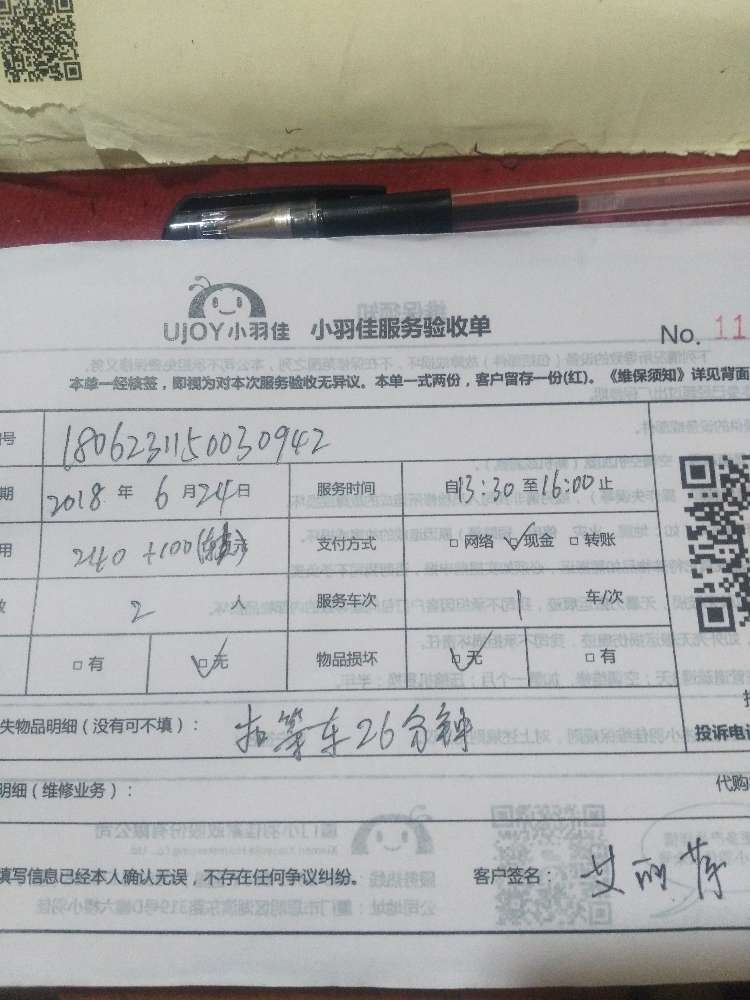 UJOY小羽佳 小羽佳服务验收单
No. 11
本单一经核签，即视为对本次服务验收无异议。本单一式两份，客户留存一份(红)。《维保须知》详见背面
号 1806231150030942
期 2018 年 6 月 24 日 服务时间 自13:30 至16:00 止
用 240 +100 支付方式 □ 网络 ☑ 现金 □ 转账
数 2 人 服务车次 1 车/次
□ 有 ☑ 无 物品损坏 ☑ 无 □ 有
失物品明细（没有可不填）： 扣等车26分钟
投诉电话
明细（维修业务）： 代购
填写信息已经本人确认无误，不存在任何争议纠纷。 客户签名：艾丽萍